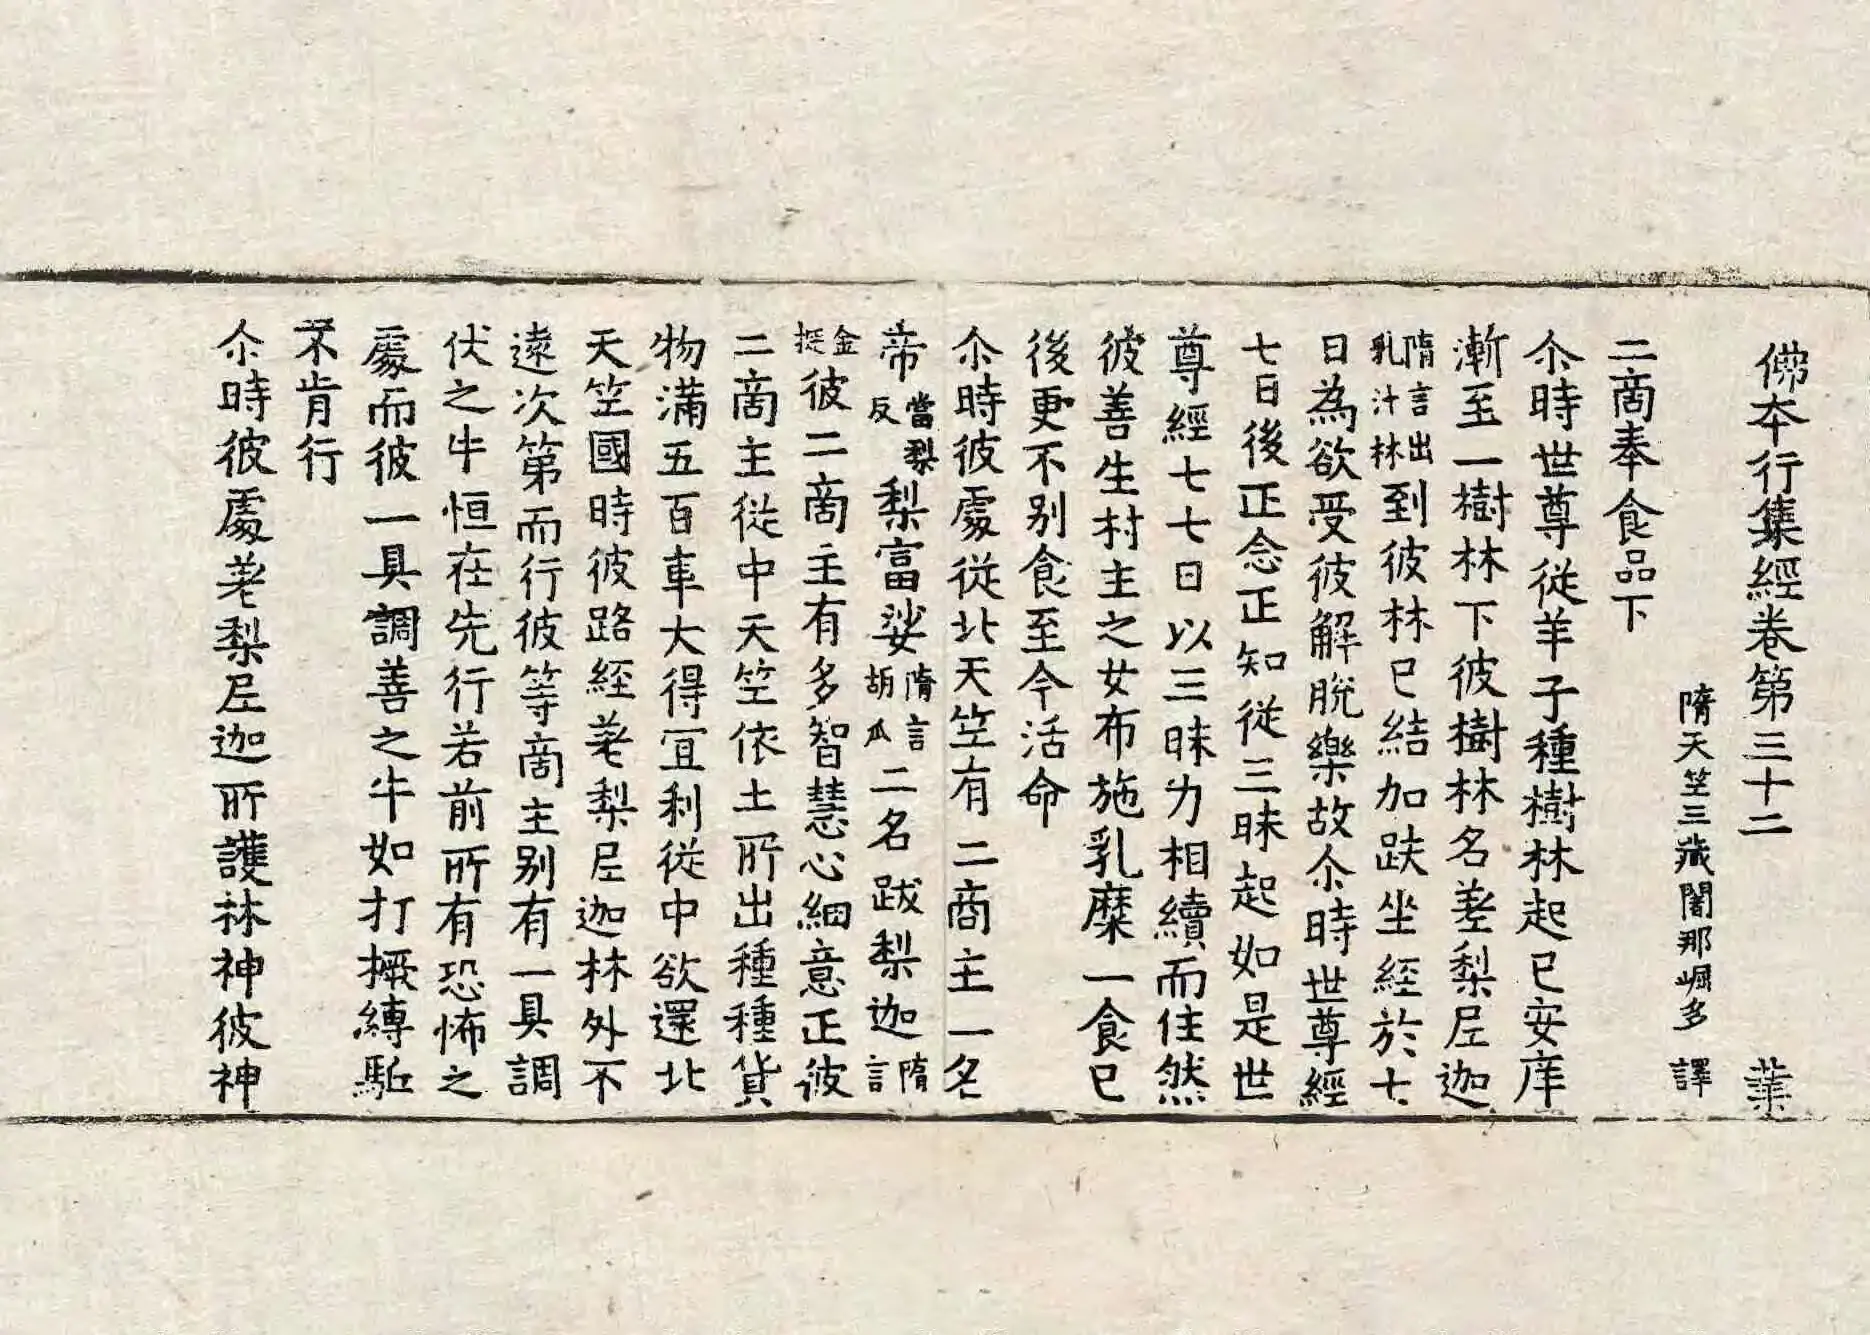 佛本行集經卷第三十二 業
隋天竺三藏闍那崛多 譯
二商奉食品下
尒時世尊從羊子種樹林起已安庠
漸至一樹林下彼樹林名差梨尼迦
隋言出乳汁林到彼林已結加趺坐經於七
日為欲受彼解脫樂故尒時世尊經
七日後正念正知從三昧起如是世
尊經七七日以三昧力相續而住然
彼善生村主之女布施乳糜一食已
後更不別食至今活命
尒時彼處從北天笁有二商主一名
帝當梨反梨富娑隋言胡瓜二名跋梨迦隋言
金挻彼二商主有多智慧心細意正彼
二商主從中天笁依土所出種種貨
物滿五百車大得冝利從中欲還北
天笁國時彼路經差梨尼迦林外不
遠次第而行彼等商主別有一具調
伏之牛恒在先行若前所有恐怖之
處而彼一具調善之牛如打橛縛駈
不肯行
尒時彼處差梨尼迦所護林神彼神